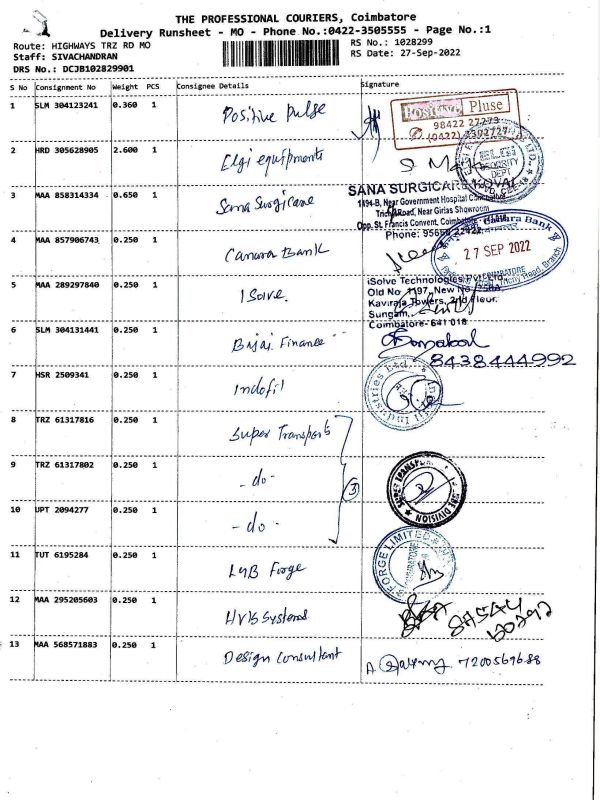 THE PROFESSIONAL COURIERS, Coimbatore
Delivery Runsheet - MO - Phone No.:0422-3505555 - Page No.:1
Route: HIGHWAYS TRZ RD MO
RS No.: 1028299
Staff: SIVACHANDRAN
RS Date: 27-Sep-2022
DRS No.: DCJB102829901
S No Consignment No Weight PCS Consignee Details Signature
1 SLM 304123241 0.360 1 Positive pulse
Positive Pluse
98422 27273
2 HRD 305628905 2.600 1 Elgi equipments
SECURITY
DEPT
3 MAA 858314334 0.650 1 Sana Surgicare
SANA SURGICARE
1494-B, Near Government Hospital
Road, Near Girlas Showroom
Opp. St. Francis Convent, Coimbatore
Phone: 95666 22422
4 MAA 857906743 0.250 1 Canara Bank
Canara Bank
27 SEP 2022
COIMBATORE
Branch
5 MAA 289297840 0.250 1 I Solve
iSolve Technologies Pvt Ltd
Old No. 1197, New No.
Kaviraja Towers, 2nd Floor.
Sungam,
Coimbatore- 641 018
6 SLM 304131441 0.250 1 Bajaj Finance
8438444992
7 HSR 2509341 0.250 1 Indofil
Industries Ltd.
8 TRZ 61317816 0.250 1 Super Transports
9 TRZ 61317802 0.250 1 - do -
3
SUPER TRANSPORTS
DIVISION
10 UPT 2094277 0.250 1 - do -
11 TUT 6195284 0.250 1 LGB Forge
FORGE LIMITED
12 MAA 295205603 0.250 1 HVK Systems
13 MAA 568571883 0.250 1 Design consultant
A 7200569688